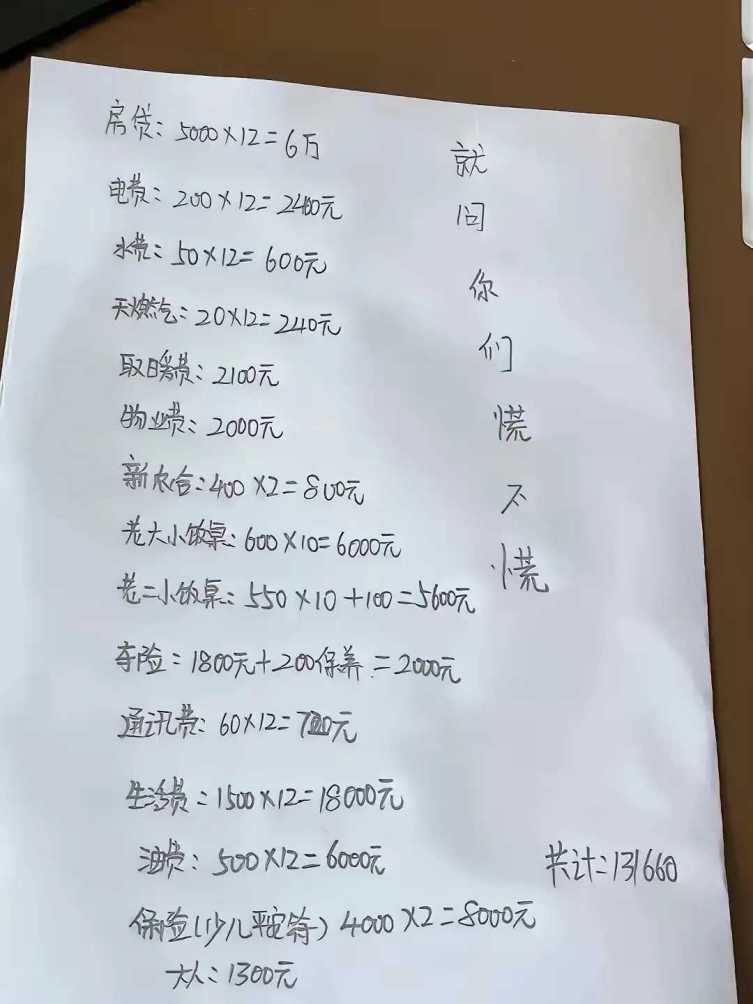 房贷：5000×12=6万
电费：200×12=2400元
水费：50×12=600元
天燃气：20×12=240元
取暖费：2100元
物业费：2000元
新农合：400×2=800元
老大小饭桌：600×10=6000元
老二小饭桌：550×10+100=5600元
车险：1800元+200保养=2000元
通讯费：60×12=720元
生活费：1500×12=18000元
油费：500×12=6000元
保险(少儿平安符) 4000×2=8000元
大人：1300元
就问你们慌不慌
共计：131660